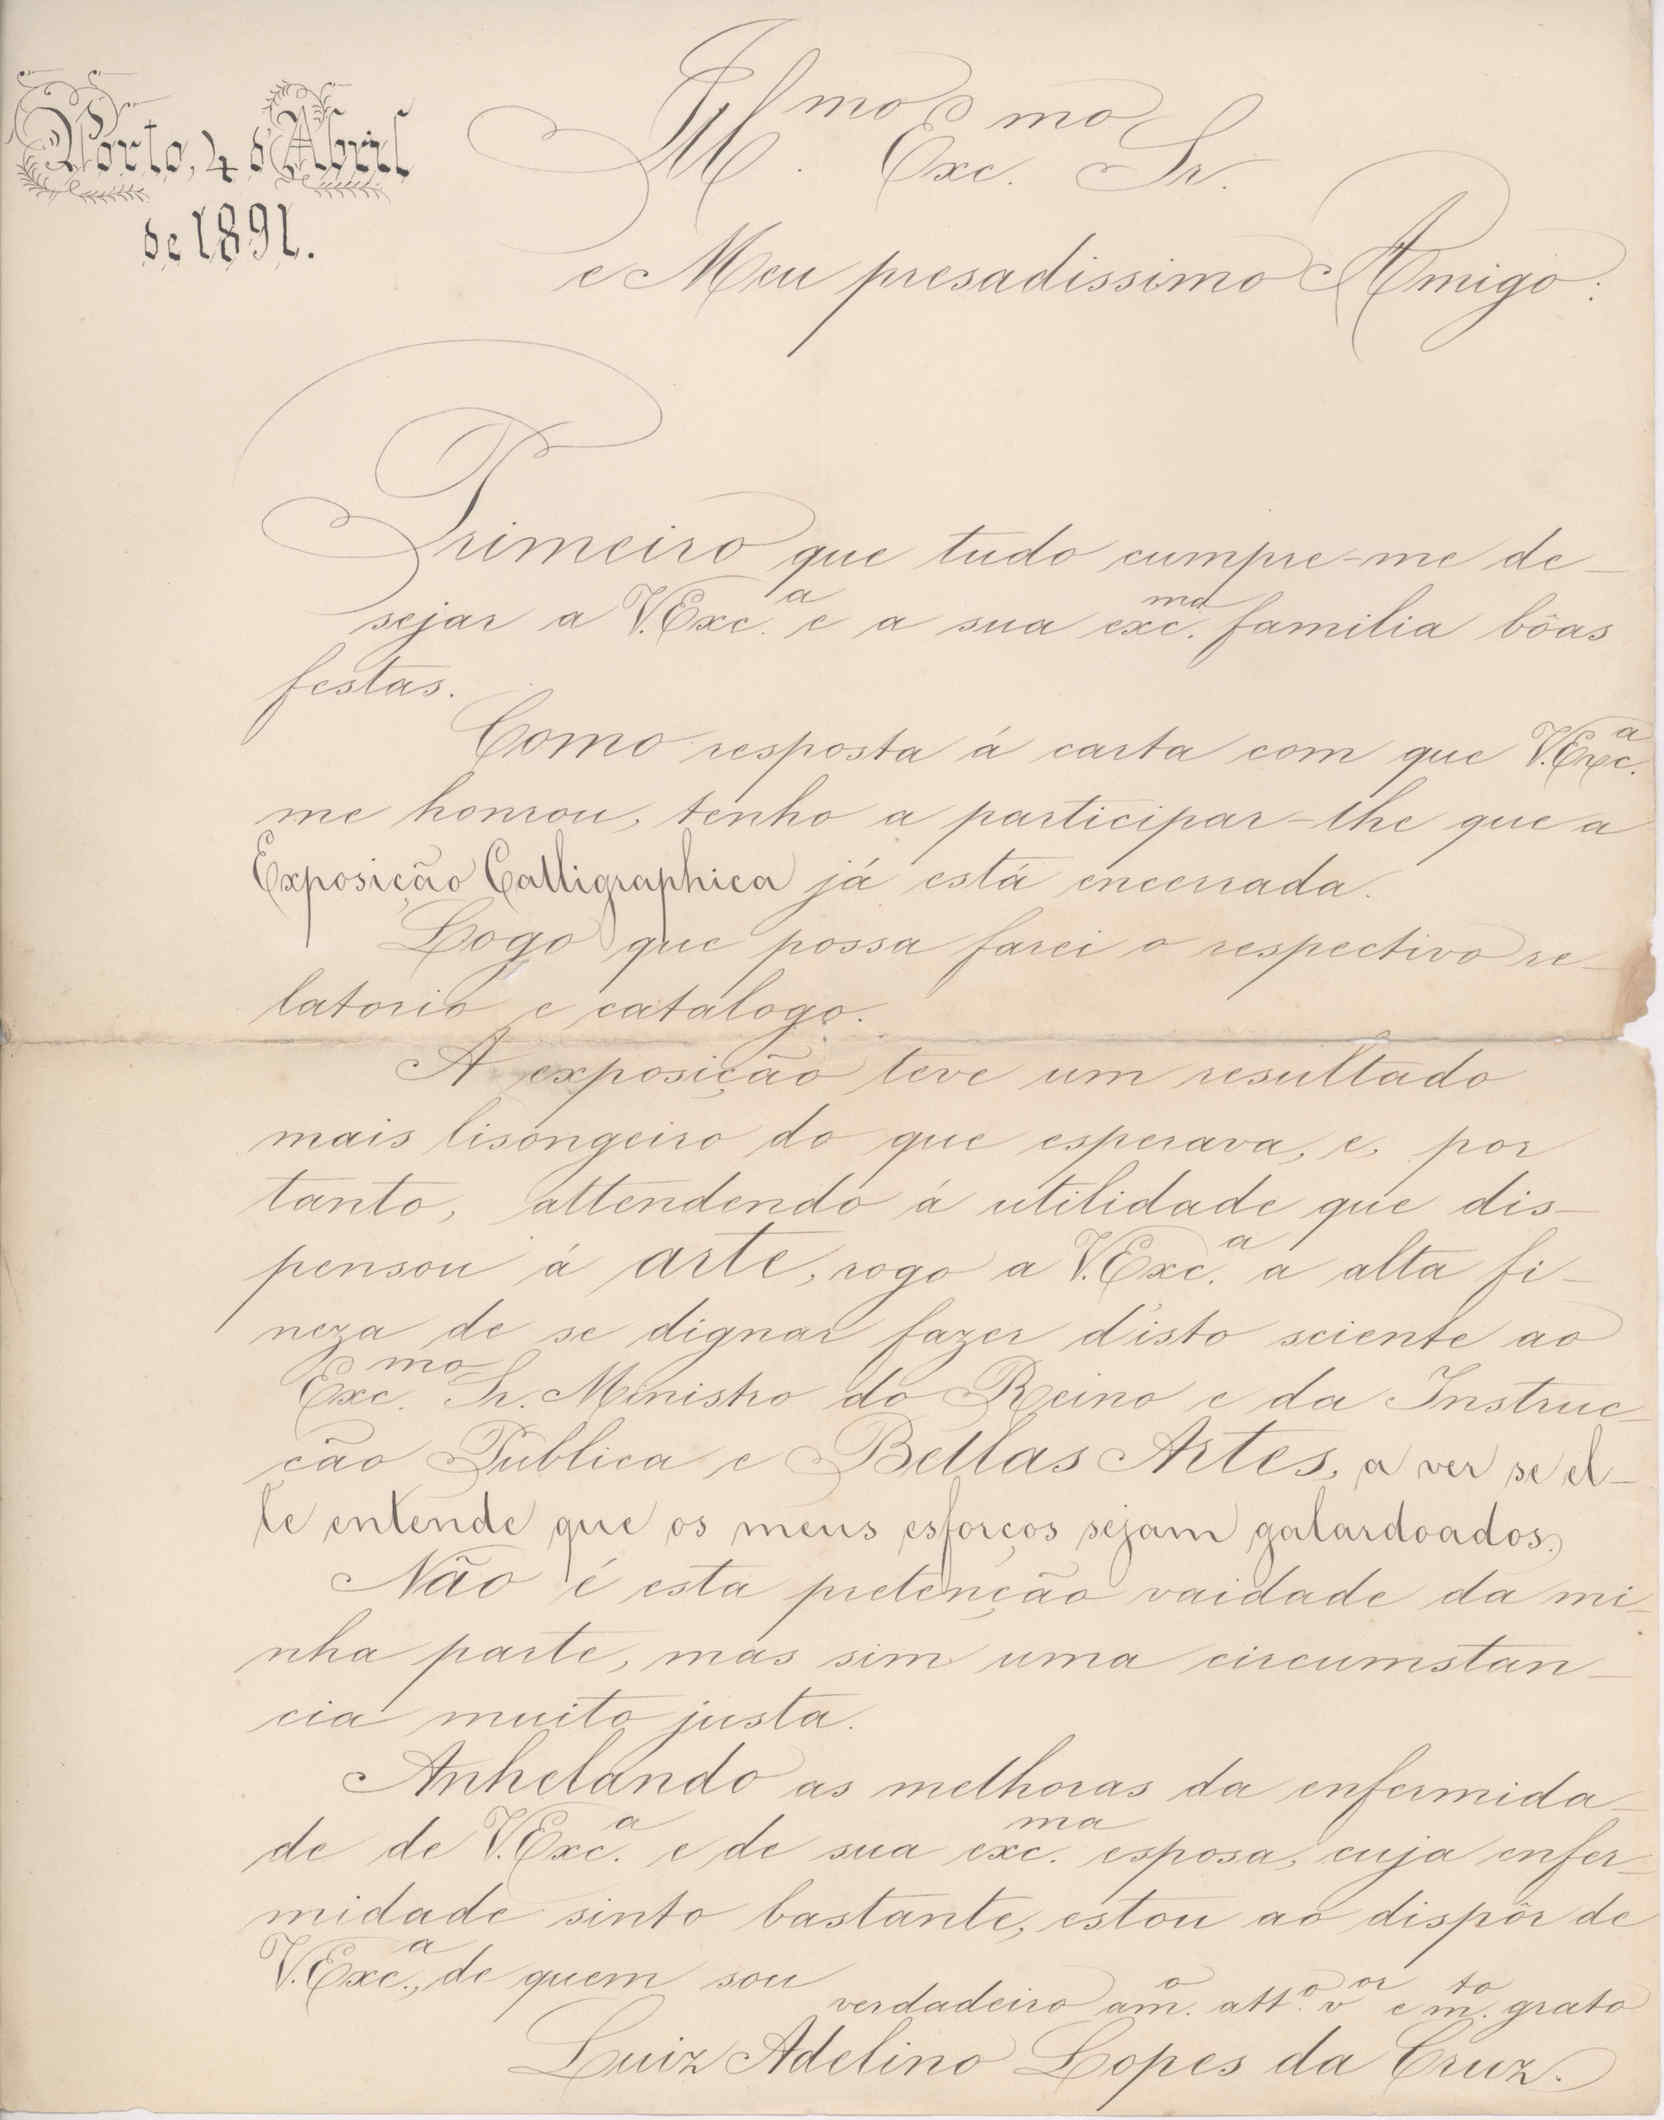 Porto, 4 d'Abril
de 1891.
Ill.mo Exc.mo Sr.
e Meu presadissimo Amigo:
Primeiro que tudo cumpre-me de-
sejar a V. Exc.a e a sua exc.ma familia bôas
festas.
Como resposta á carta com que V. Exc.a
me honrou, tenho a participar-lhe que a
Exposição Calligraphica já está encerrada.
Logo que possa farei o respectivo re-
latorio e catalogo.
A exposição teve um resultado
mais lisongeiro do que esperava, e, por
tanto, attendendo á utilidade que dis-
pensou á arte, rogo a V. Exc.a a alta fi-
neza de se dignar fazer d'isto sciente ao
Exc.mo Sr. Ministro do Reino e da Instruc-
ção Publica e Bellas Artes, a ver se el-
le entende que os meus esforços sejam galardoados.
Não é esta pretenção vaidade da mi-
nha parte, mas sim uma circumstan-
cia muito justa.
Anhelando as melhoras da enfermida-
de de V. Exc.a e de sua exc.ma esposa, cuja enfer-
midade sinto bastante, estou ao dispôr de
V. Exc.a, de quem sou
verdadeiro am.o att.o v.or e m.to grato
Luiz Adelino Lopes da Cruz.